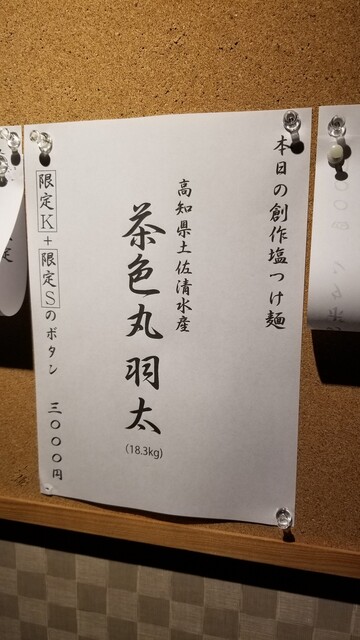 本日の創作塩つけ麺
高知県土佐清水産
茶色丸 羽太
(18.3kg)
限定K+限定Sのボタン 三〇〇〇円